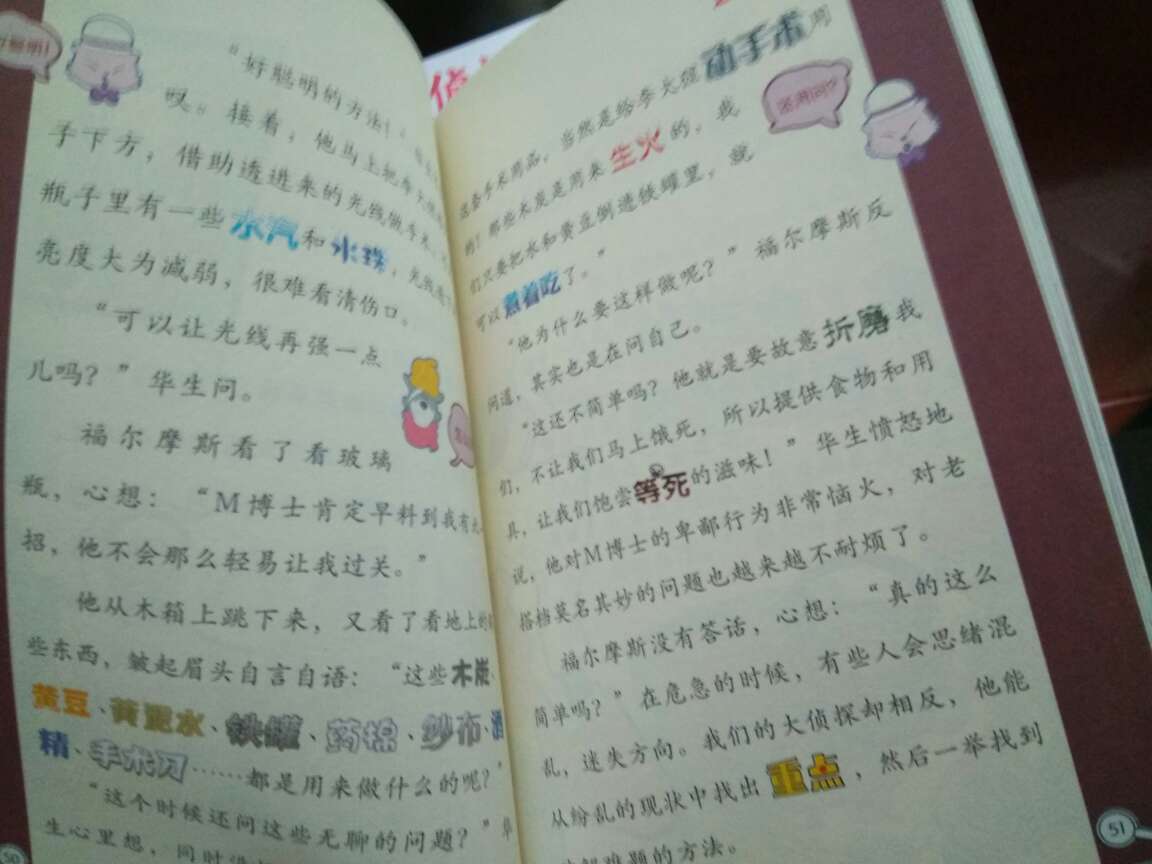 “好聪明的方法！”
叹。接着，他马上把
子下方，借助透进来的光线做手术
瓶子里有一些水汽和水珠，光线
亮度大为减弱，很难看清伤口。
“可以让光线再强一点
儿吗？”华生问。
福尔摩斯看了看玻璃
瓶，心想：“M博士肯定早料到我有
招，他不会那么轻易让我过关。”
他从木箱上跳下来，又看了看地上的
些东西，皱起眉头自言自语：“这些木炭、
黄豆、黄泥水、铁罐、药棉、纱布、酒
精、手术刀……都是用来做什么的呢？”
“这个时候还问这些无聊的问题？”华
生心里想，同时
50
动手术用
这套手术用品，当然是给李大猩
的！那些木炭是用来生火的，我
们只要把水和黄豆倒进铁罐里，就
可以煮着吃了。”
“他为什么要这样做呢？”福尔摩斯反
问道，其实也是在问自己。
“这还不简单吗？他就是要故意折磨我
们，不让我们马上饿死，所以提供食物和用
具，让我们饱尝等死的滋味！”华生愤怒地
说，他对M博士的卑鄙行为非常恼火，对老
搭档莫名其妙的问题也越来越不耐烦了。
福尔摩斯没有答话，心想：“真的这么
简单吗？”在危急的时候，有些人会思绪混
乱，迷失方向。我们的大侦探却相反，他能
从纷乱的现状中找出重点，然后一举找到
解难题的方法。
51